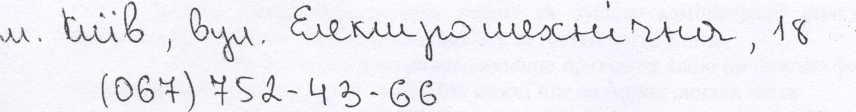 м. Київ, вул. Електротехнічна, 18
(067) 752-43-66